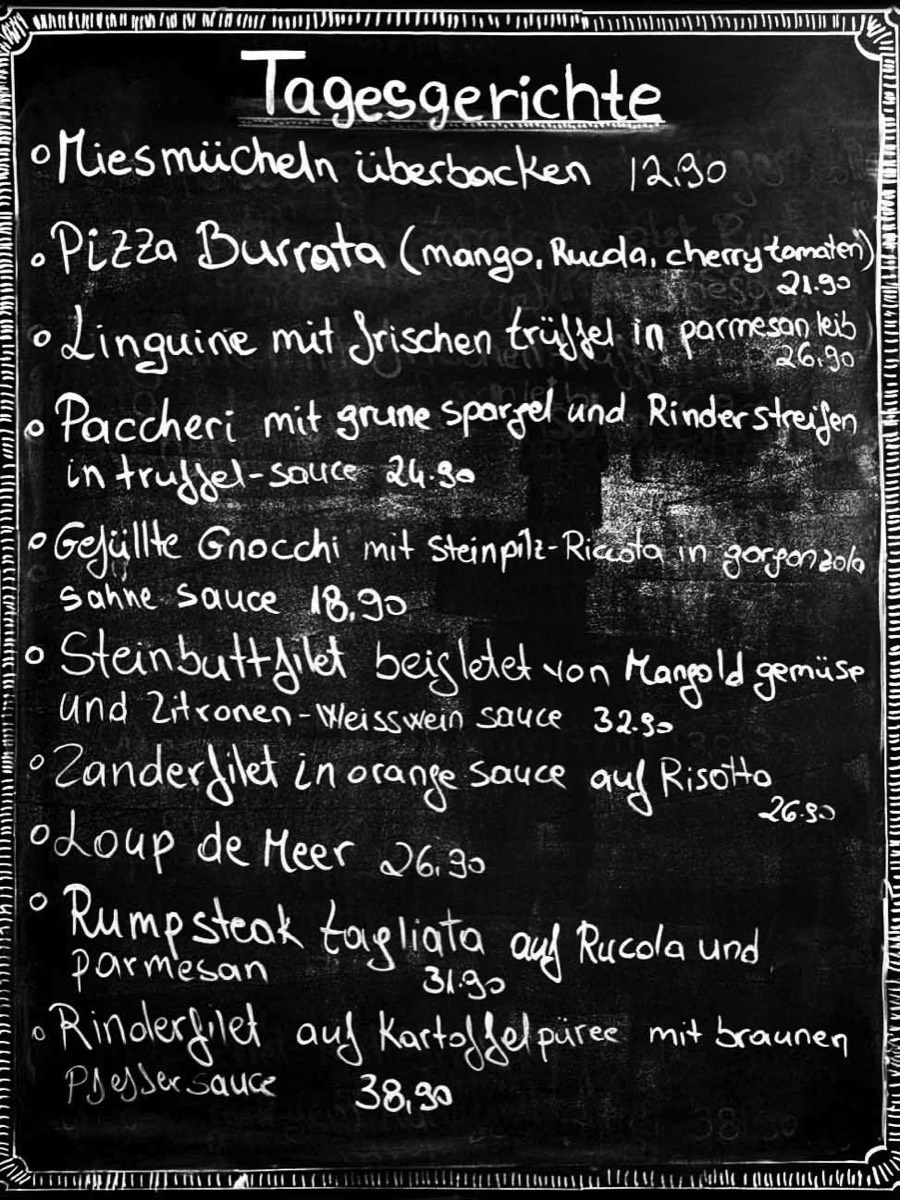 Tagesgerichte
Miesmücheln überbacken 12,90
Pizza Burrata (mango, Rucola, cherry tomaten)
21.90
Linguine mit frischen trüffel in parmesan leib
26,90
Paccheri mit grune spargel und Rinderstreifen
in truffel-sauce 24.90
Gefüllte Gnocchi mit Steinpilz-Riccota in gorgonzola
sahne sauce 18,90
Steinbuttfilet beigletet von Mangold gemüse
und Zitronen-Weisswein sauce 32.90
Zanderfilet in orange sauce auf Risotto
26.90
Loup de Meer 26,90
Rumpsteak tagliata auf Rucola und
parmesan 31.90
Rinderfilet auf Kartoffelpüree mit braunen
Pfeffersauce 38,90